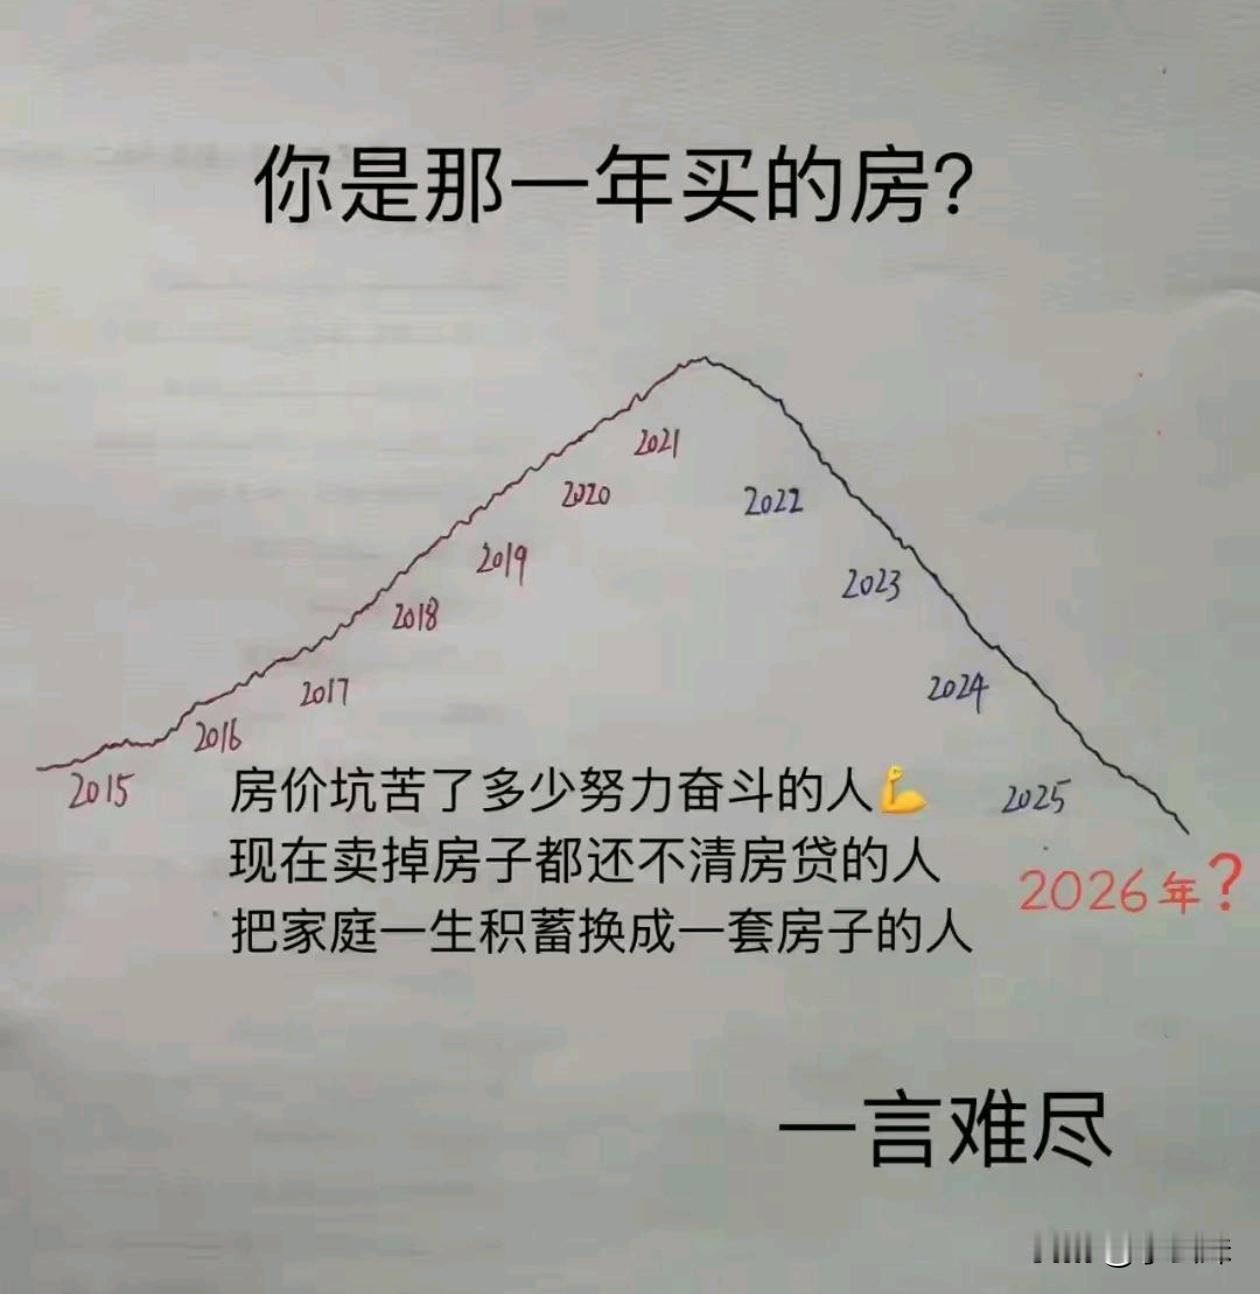 你是那一年买的房?
2021
2020
2022
2019
2023
2018
2024
2017
2016
2015
2025
房价坑苦了多少努力奋斗的人💪
现在卖掉房子都还不清房贷的人
把家庭一生积蓄换成一套房子的人
2026年?
一言难尽